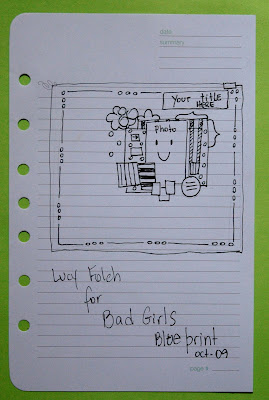 date
summary
Your title
HERE
Photo
Lucy Folch
for
Bad Girls
Blueprint
oct-09
page #